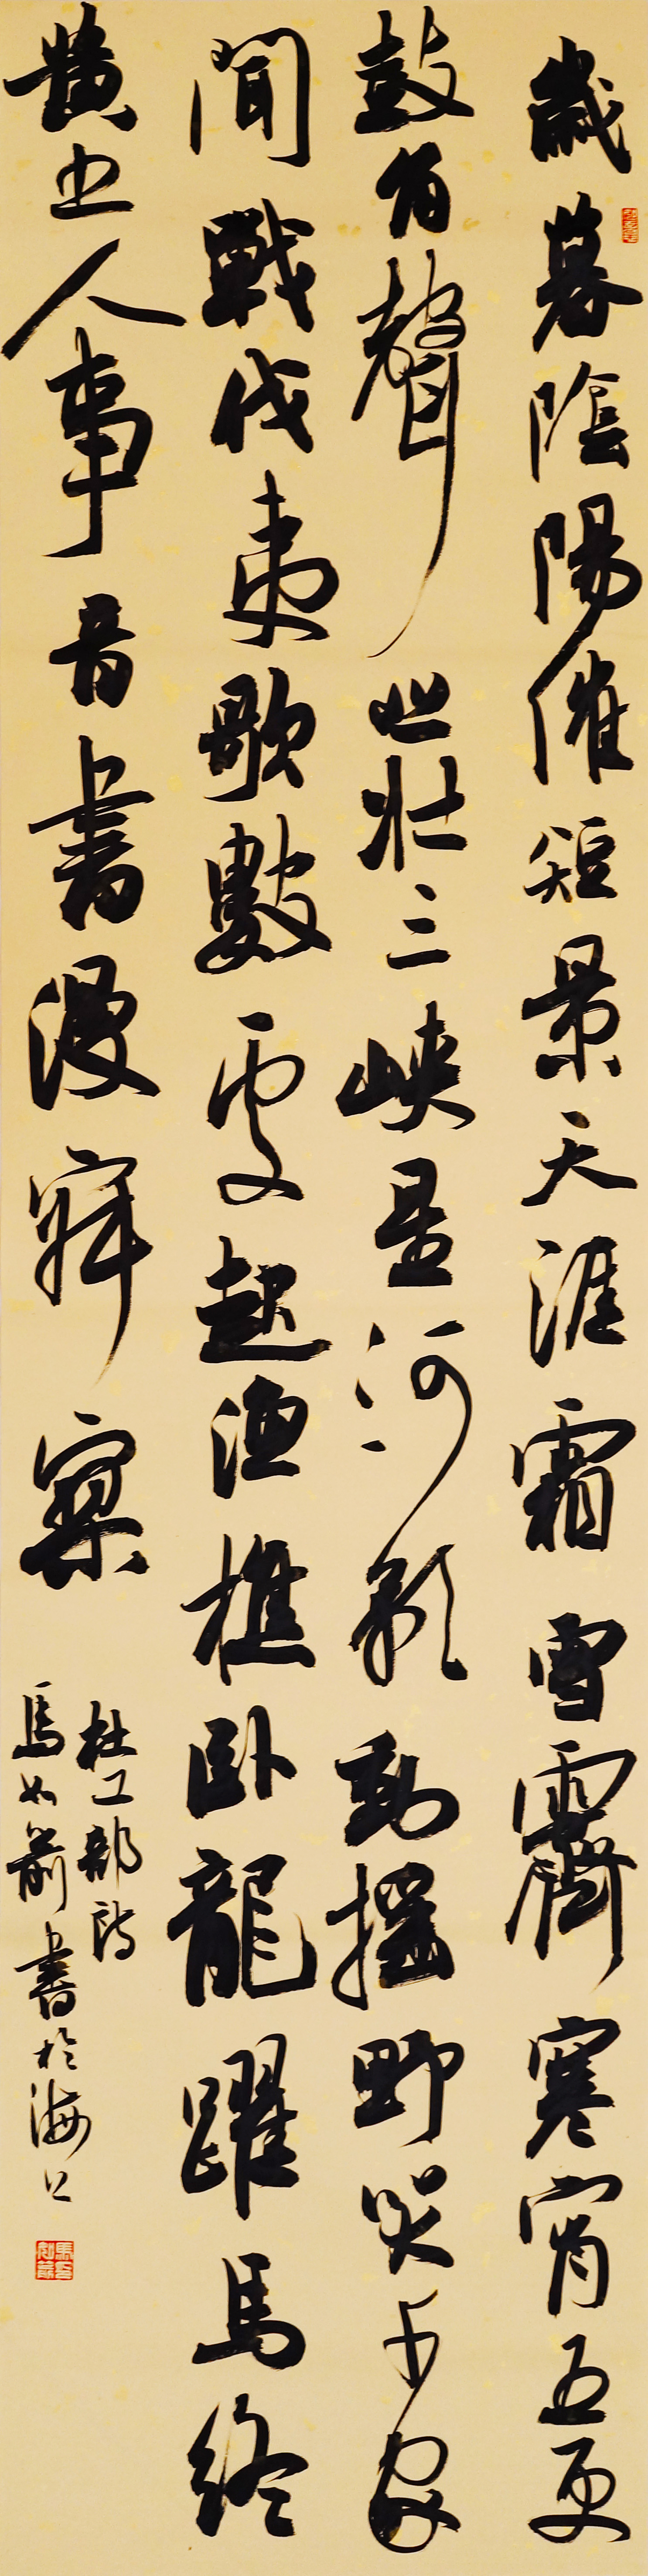 歲暮陰陽催短景天涯霜雪霽寒宵五更
鼓角聲悲壯三峽星河影動搖野哭千家
聞戰伐夷歌數處起漁樵臥龍躍馬終
黃土人事音書漫寂寥
杜工部詩
馬如箭書於海上